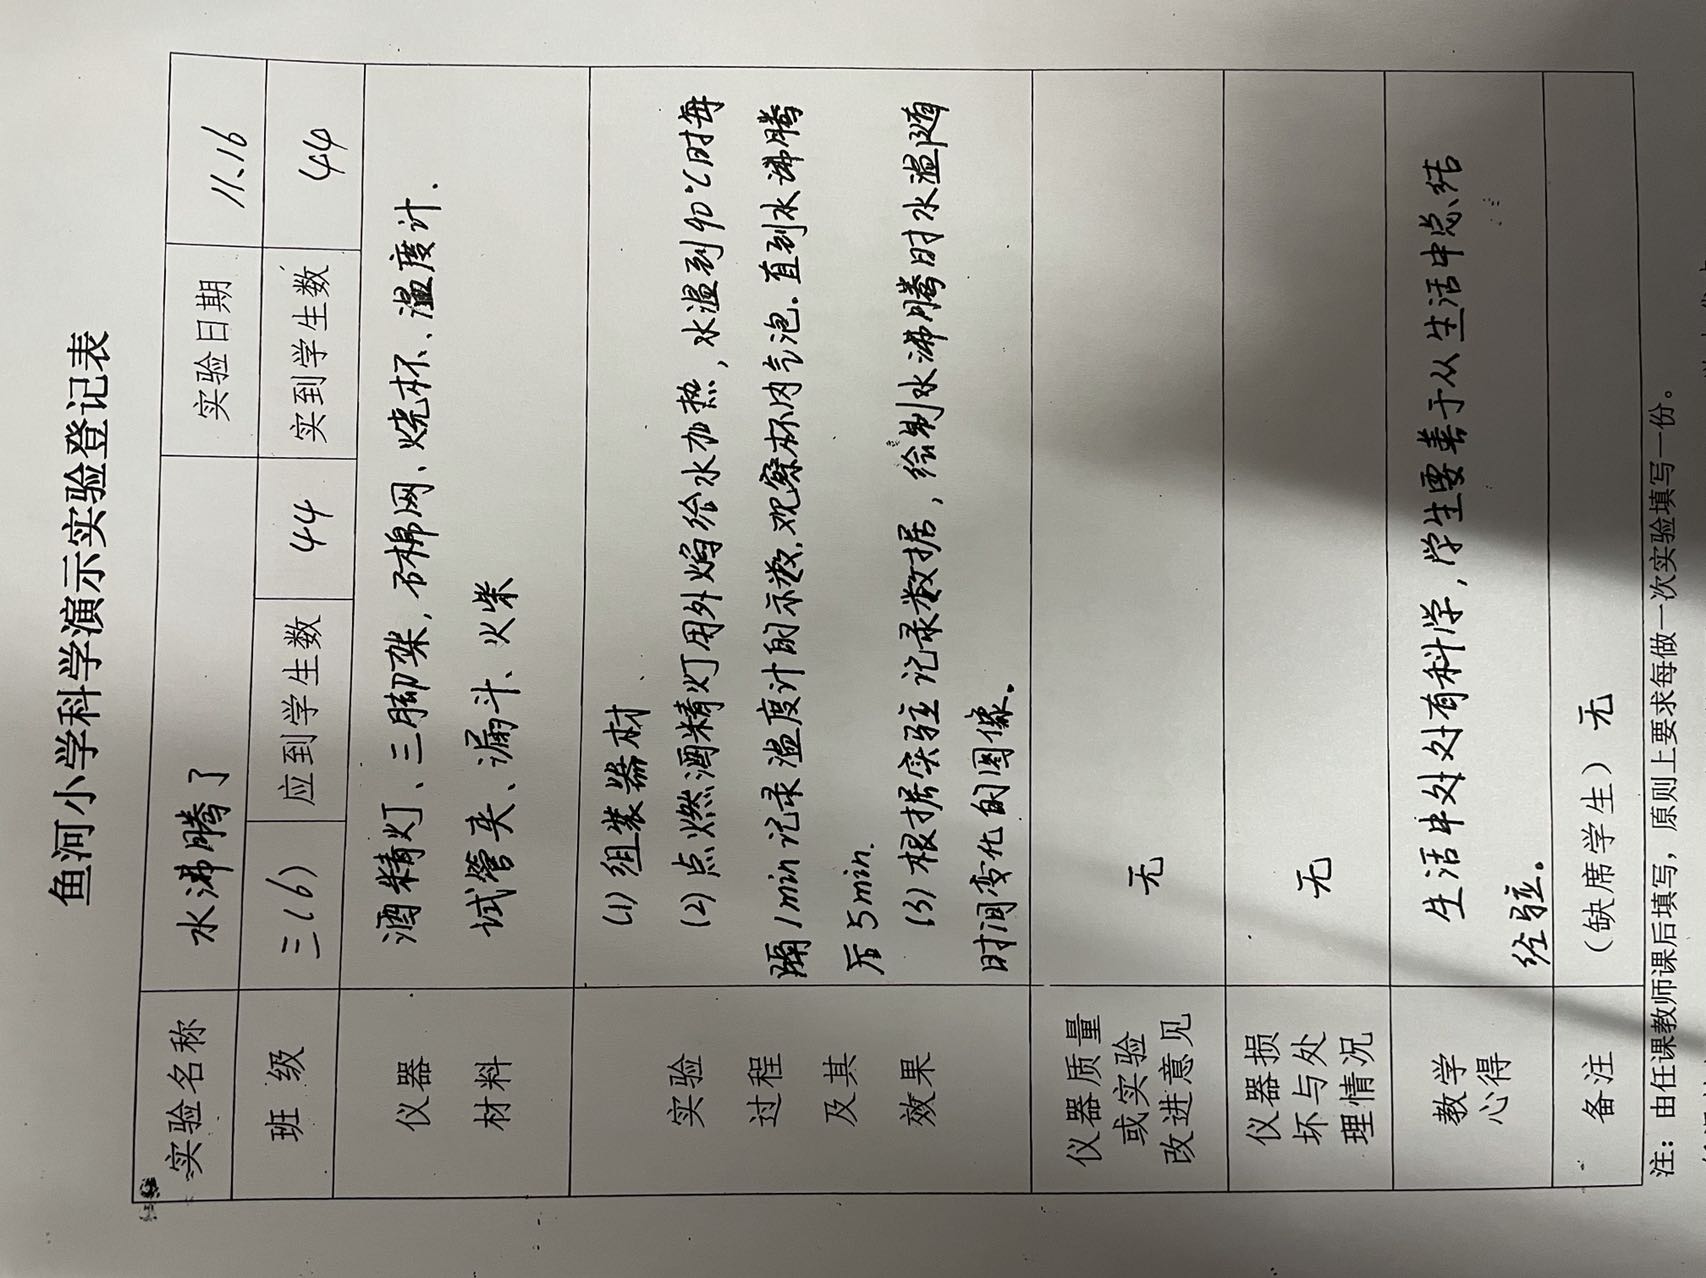 鱼河小学科学演示实验登记表
实验名称 水沸腾了 实验日期 11.16
班 级 三(6) 应到学生数 44 实到学生数 44
仪器
材料
酒精灯、三脚架，石棉网、烧杯、温度计.
试管夹、漏斗、火柴
实验
过程
及其
效果
(1) 组装器材
(2) 点燃酒精灯用外焰给水加热，水温到90℃时每
隔1min记录温度计的示数,观察杯内气泡.直到水沸腾
后5min.
(3) 根据实验记录数据，绘制水沸腾时水温随
时间变化的图像。
仪器质量
或实验
改进意见
无
仪器损
坏与处
理情况
无
教学
心得
生活中处处有科学，学生要善于从生活中总结
经验。
备注 (缺席学生) 无
注：由任课教师课后填写，原则上要求每做一次实验填写一份。